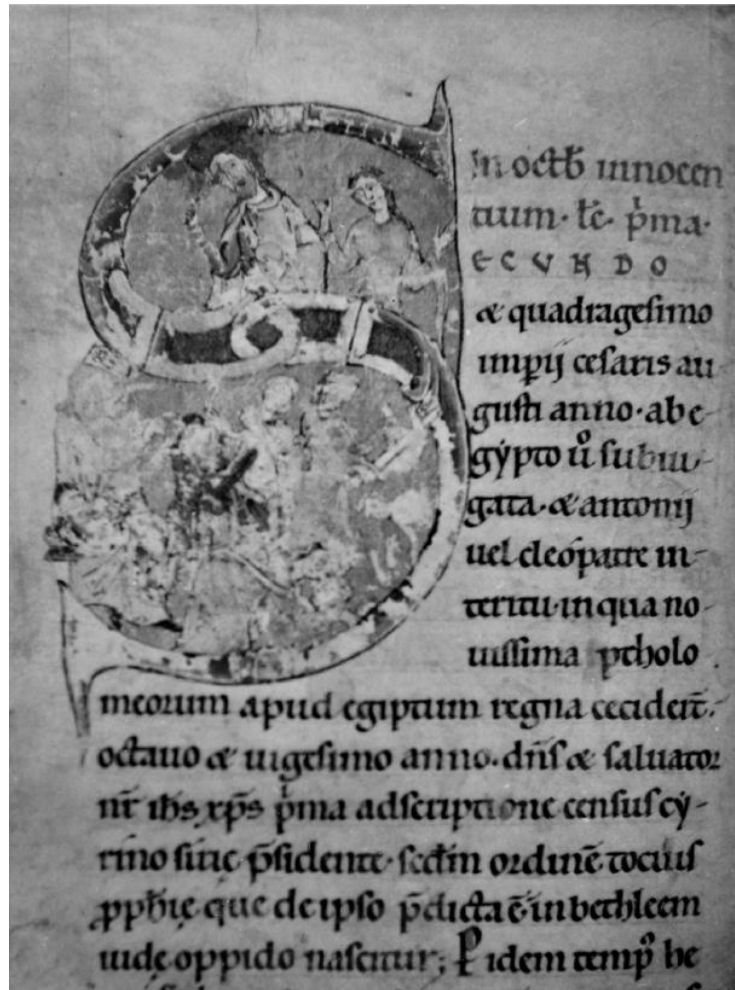 In octb innocen
tium. lc. pma.
SECUNDO
& quadragesimo
imperij cesaris au
gusti anno. ab e-
gypto uo subiu-
gata. & antonij
uel cleopatre in-
teritu. in qua no-
uissima ptholo
meorum apud egiptum regna cecidert.
octauo & uigesimo anno. dns & saluator
nr ihs xps pma adscriptione census cy-
rino sirie psidente. scdm ordine tocius
pphie que de ipso pdicta e. in bethleem
iude oppido nascitur; P idem temp he